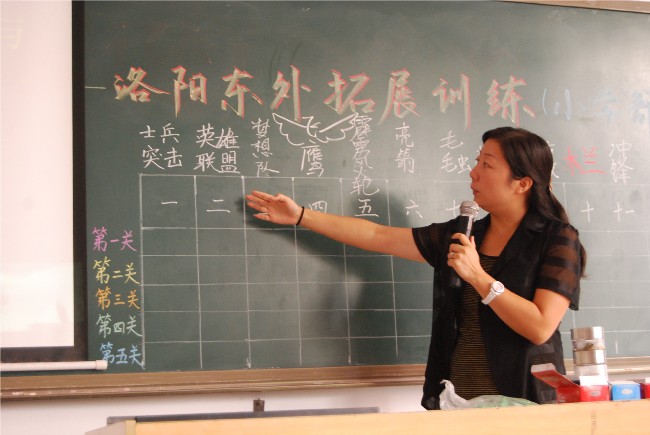 洛阳东外拓展训练(小
士兵突击 英雄联盟 梦想队 飞鹰 霹雳火 亮 毛毛虫 冲锋
一 二 四 五 六 十 十一
第一关
第二关
第三关
第四关
第五关